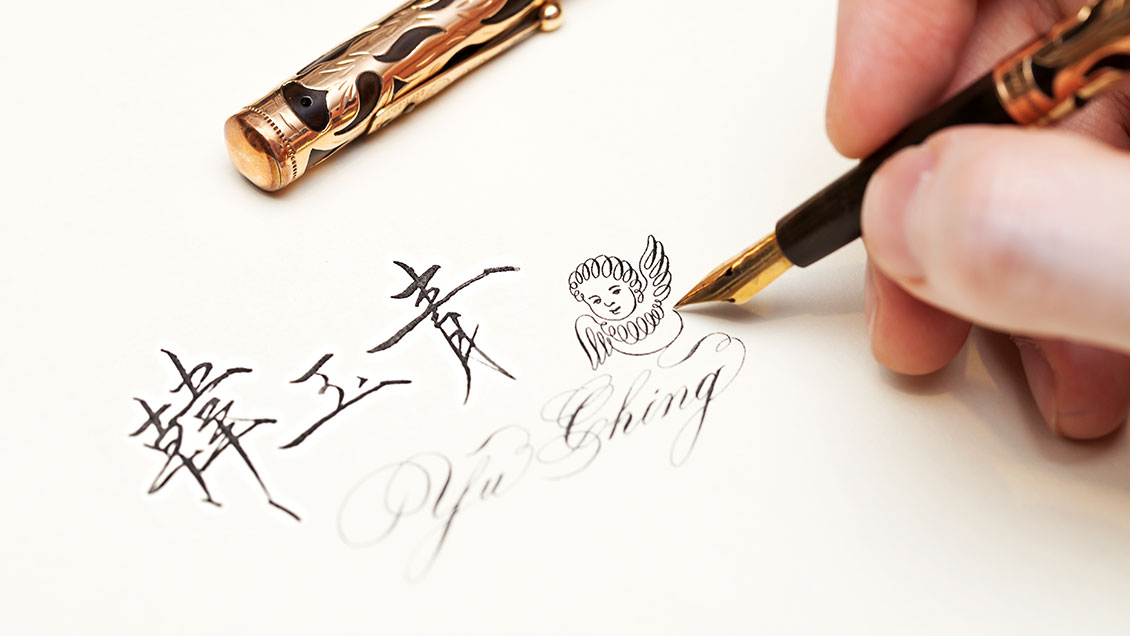 韓玉青
Yu Ching